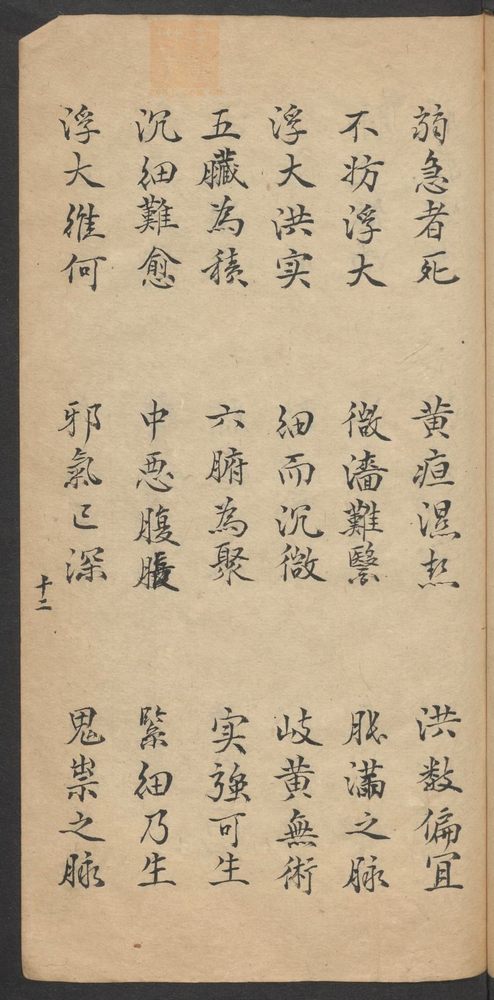 弱急者死　黄疸濕热　洪数偏冝
不妨浮大　微濇難醫　胀滿之脉
浮大洪实　細而沉微　岐黄無術
五臟為積　六腑為聚　实強可生
沉細難愈　中悪腹脹　緊細乃生
浮大維何　邪氣已深　鬼祟之脉
十二